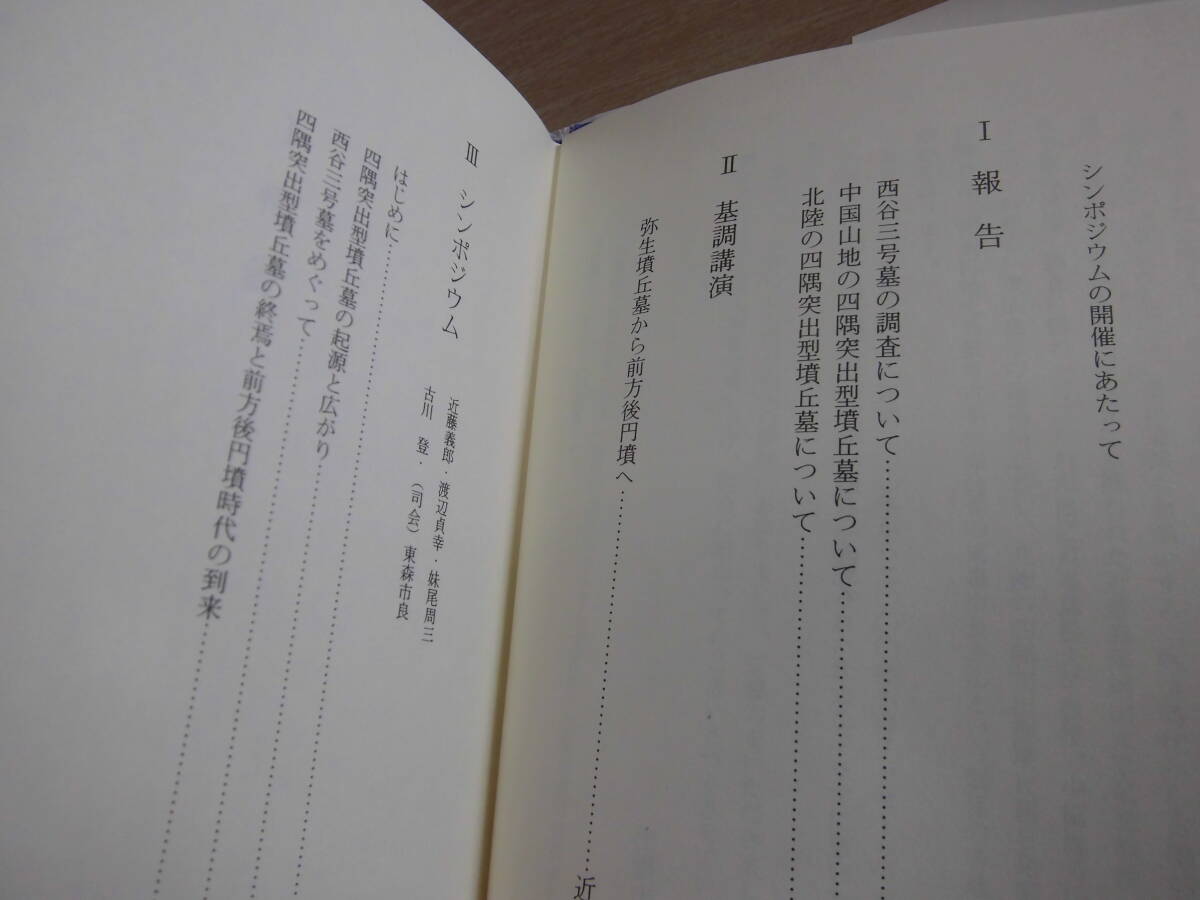 シンポジウムの開催にあたって
Ⅰ 報告
西谷三号墓の調査について
中国山地の四隅突出型墳丘墓について
北陸の四隅突出型墳丘墓について
Ⅱ 基調講演
弥生墳丘墓から前方後円墳へ
近
Ⅲ シンポジウム
近藤義郎・渡辺貞幸・妹尾周三
古川 登・(司会)東森市良
はじめに
四隅突出型墳丘墓の起源と広がり
西谷三号墓をめぐって
四隅突出型墳丘墓の終焉と前方後円墳時代の到来